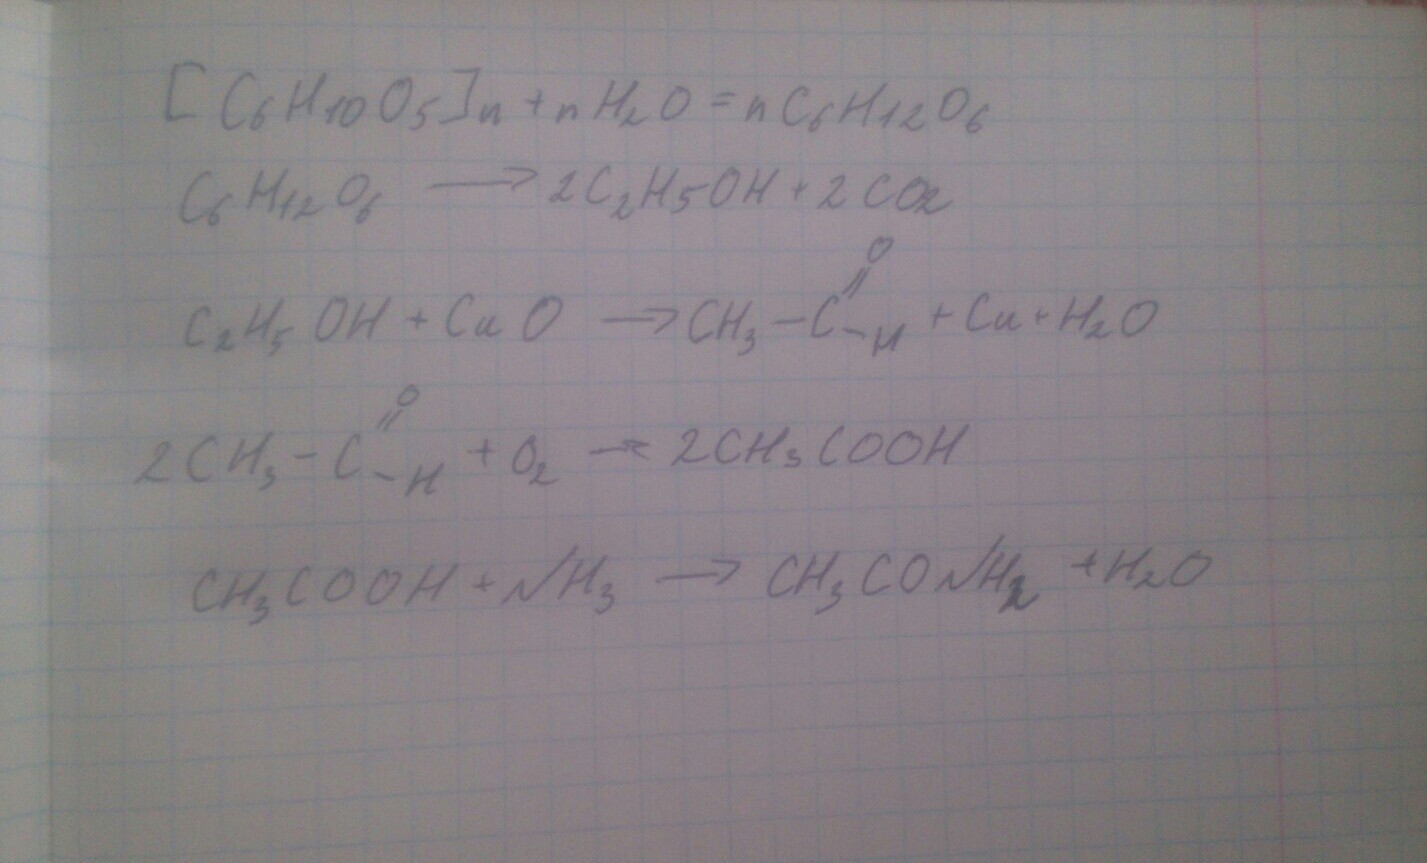 [C₆H₁₀O₅]n + nH₂O = nC₆H₁₂O₆
C₆H₁₂O₆ → 2C₂H₅OH + 2CO₂
C₂H₅OH + CuO → CH₃-C(=O)-H + Cu + H₂O
2CH₃-C(=O)-H + O₂ → 2CH₃COOH
CH₃COOH + NH₃ → CH₃CONH₂ + H₂O